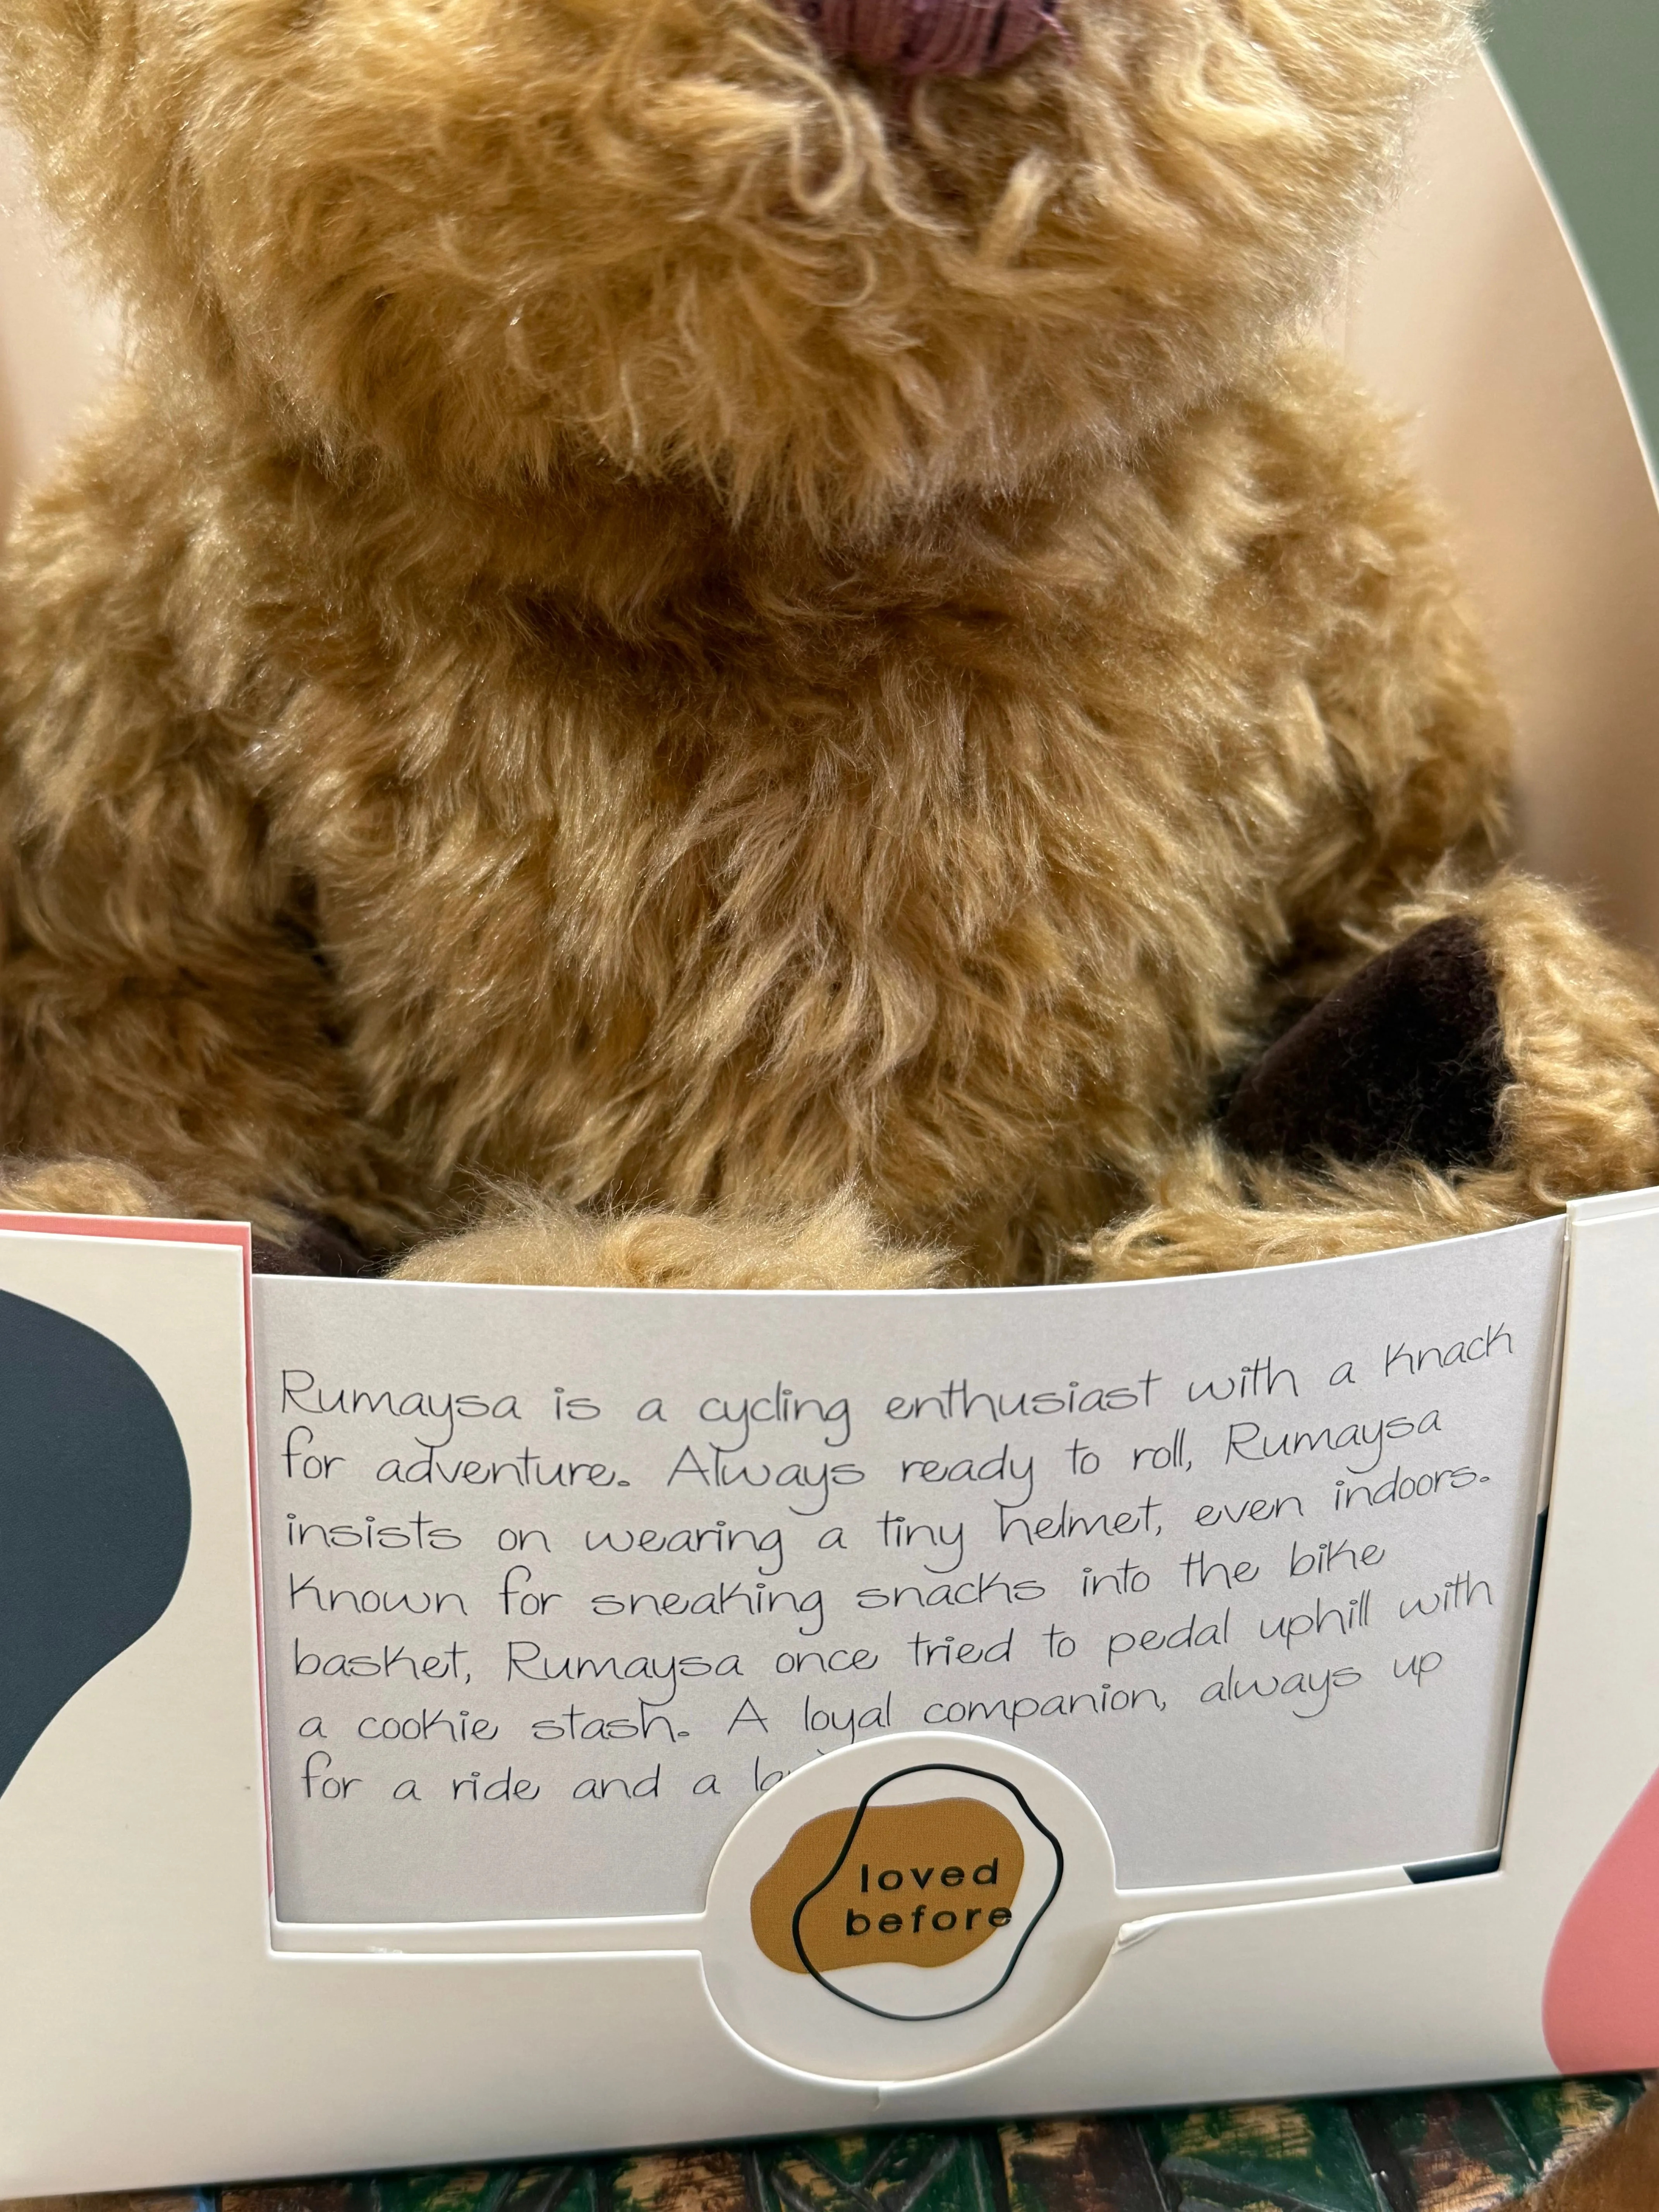 Rumaysa is a cycling enthusiast with a knack
for adventure. Always ready to roll, Rumaysa
insists on wearing a tiny helmet, even indoors.
Known for sneaking snacks into the bike
basket, Rumaysa once tried to pedal uphill with
a cookie stash. A loyal companion, always up
for a ride and a
loved
before